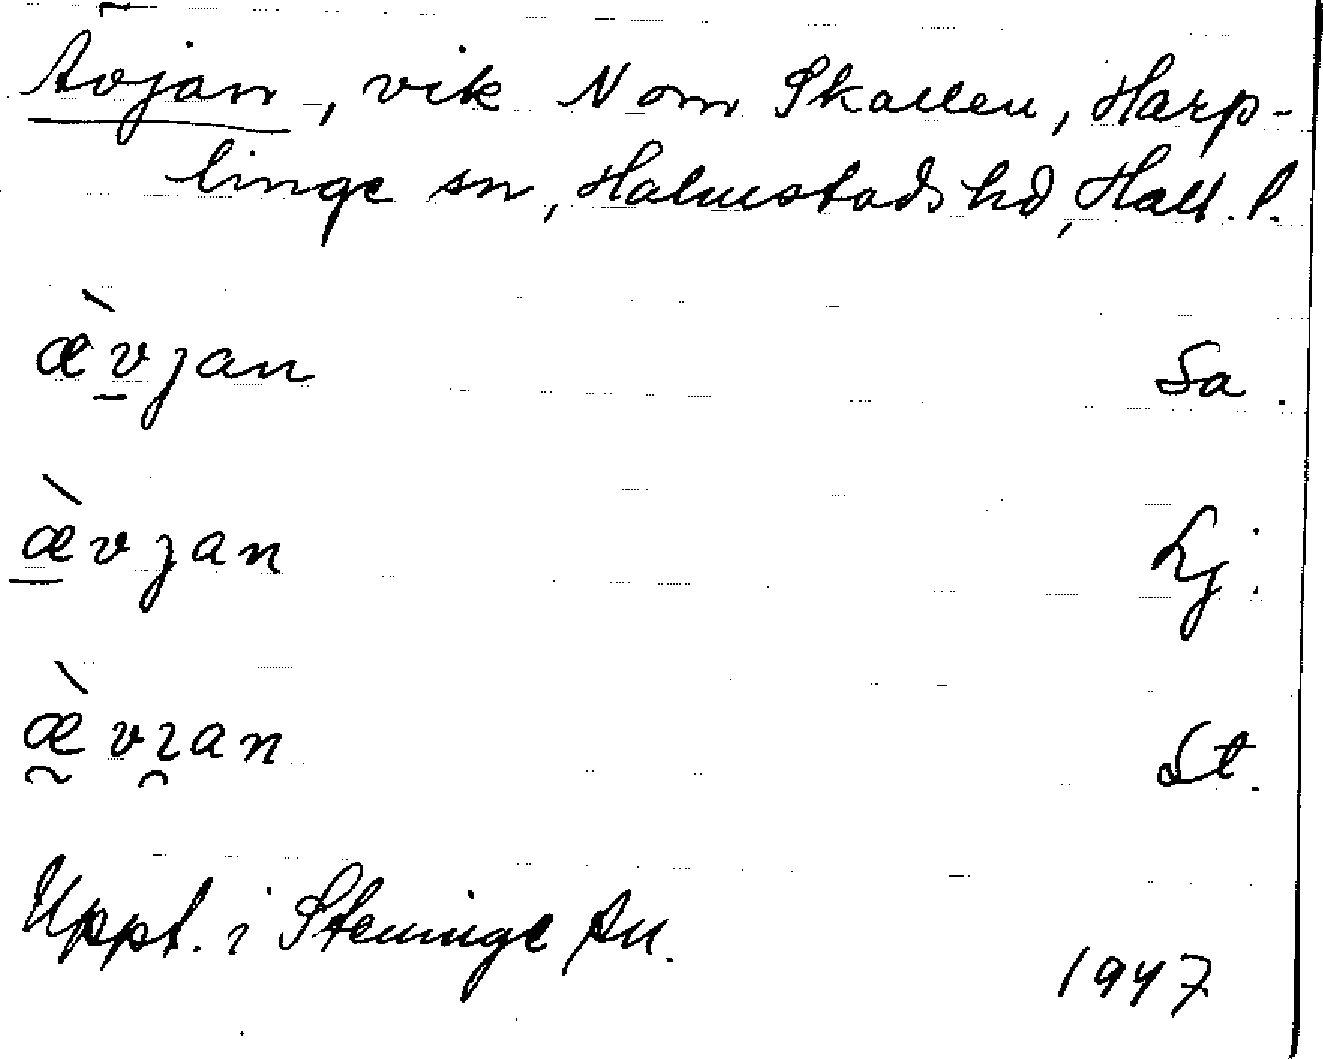 Avjan, vik N om Skallen, Harp-
linge sn, Halmstads hd, Hall. l.
æ̀vjan Sa.
æ̀vjan Lj.
æ̀vjan St.
Uppt. i Steninge An.
1947